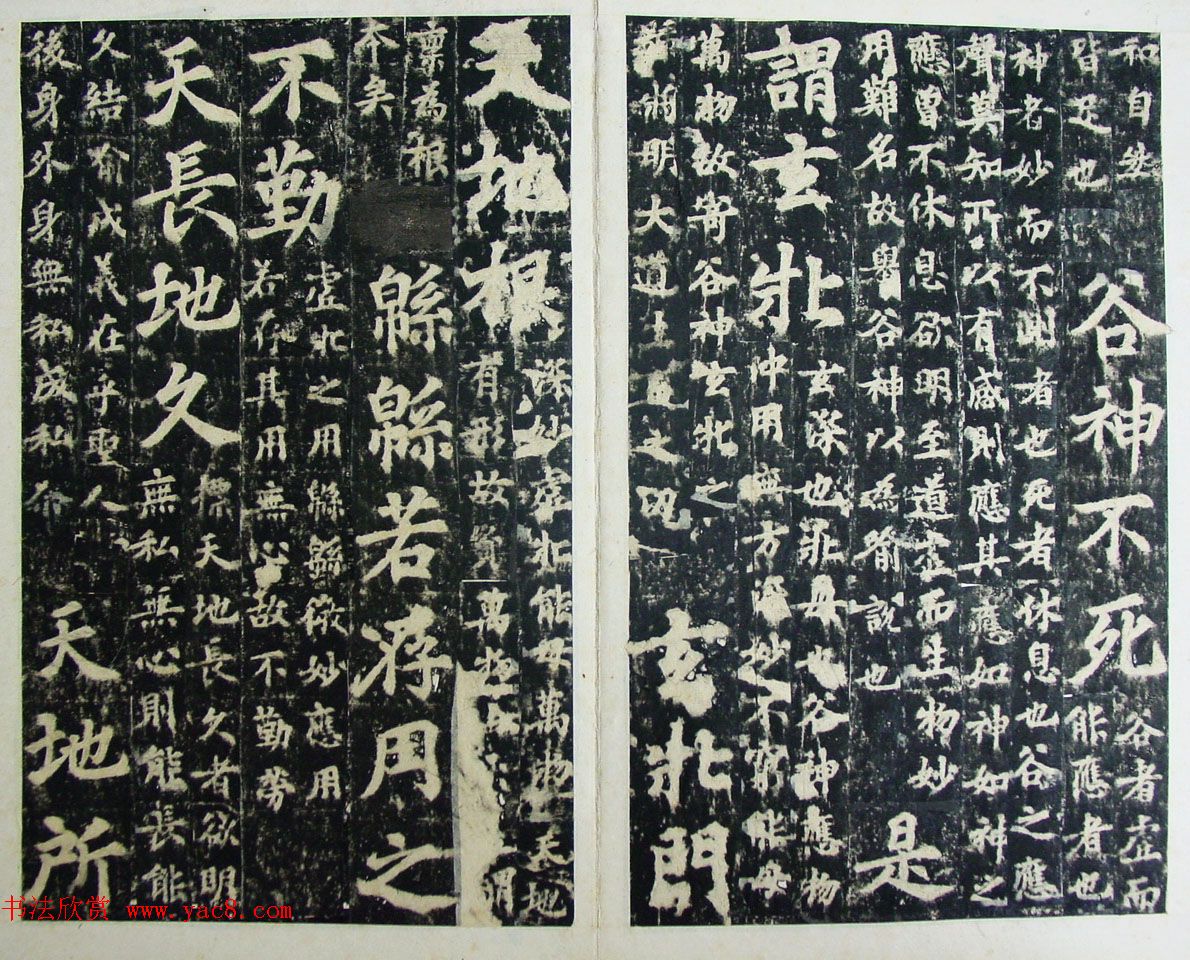 和自然
皆足也
谷神不死
谷者虛而
能應者也
神者妙而不測者也死者休息也谷之應
聲莫知所以有感則應其應如神如神之
應曾不休息欲明至道虛而生物妙
用難名故舉谷神以為喻說也
是
謂玄牝
玄深也牝母也谷神應物
沖用無方深妙不窮能母
萬物故寄谷神玄牝之
號將明大道
玄牝門
天地根
深妙虛牝能母萬物天地
有形故資萬物
稟為根
本矣
緜緜若存用之
不勤
虛牝之用緜緜微妙應用
若存其用無心故不勤勞
天長地久
標天地長久者欲明
無私無心則能長能
久結喻成義在乎聖人
後身外身無私成私爾
天地所
书法欣赏 www.yac8.com